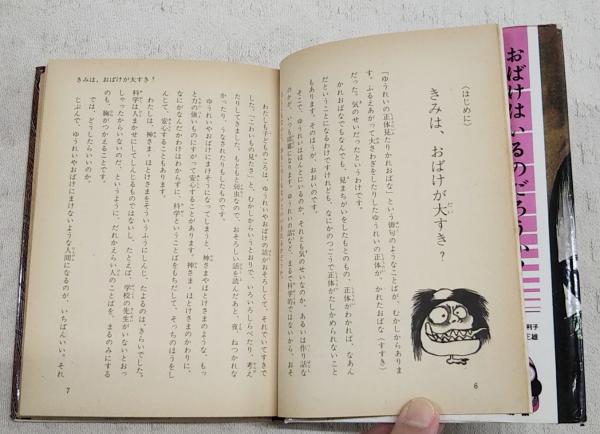 〈はじめに〉
きみは、おばけが大すき？
「ゆうれいの正体見たりかれおばな」という俳句のようなことばが、むかしからありま
す。ふるえあがって大さわぎをしたりしたゆうれいの正体が、かれたおばな（すすき）
だった。気のせいだったというわけです。
かれおばなでもなんでも、見まちがいをしたもとのもの、正体がわかれば、なあん
だということになるわけですけれども、なにかのつごうで正体がたしかめられないこと
もあります。そのほうが、おおいのです。
そこで、ゆうれいはほんとにいるのか、それとも気のせいなのか、あるいは作り話な
のかが、いつも話題になります。ゆうれいの話など、まるで科学的ではないから、おそ
6
きみは、おばけが大すき？
わたしも子どものころは、ゆうれいやおばけの話がおそろしくて、それでいてすきで
した。「こわいもの見たさ」と、むかしからいうとおりで、いろいろしらべたり、考え
たりしてきました。もともと弱虫なので、おそろしい話を読んだあと、夜、ねつかれな
かったり、うなされたりもしたものです。
ゆうれいやおばけにまけそうになってしまうと、神さまやほとけさまのような、もっ
と力の強いものにすがって安心することがあります。神さま・ほとけさまのかわりに、
なにがなんだかわけはわからずに、科学ということばをもちだして、そっちのほうをし
んじて、安心することもあります。
わたしは、神さま・ほとけさまをそういうふうにしんじ、たよるのは、きらいでした。
科学は人まかせにしてしんじるものではないし、たとえば、学校の先生がいないとおっ
しゃったからいないのだ、というように、だれかえらい人のことばを、まるのみにする
のも、胸がつかえることです。
では、どうしたらいいのか。
じぶんで、ゆうれいやおばけにまけないような人間になるのが、いちばんいい。それ
7
おばけはいるのだろうか
利子
三雄